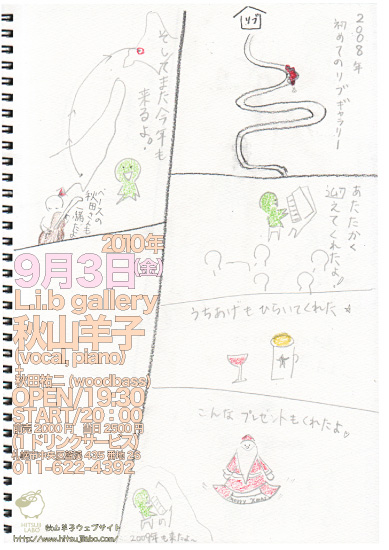 2008年
初めてのリブギャラリー
リブ
あたたかく
迎えてくれたよ!
うちあげもひらいてくれた
こんなプレゼントもくれたよ。
2009年も来たよ〜
そしてまた今年も
来るよ。
ベースの
秋田さんも
一緒だよ
2010年
9月3日(金)
L.i.b gallery
秋山羊子
(vocal, piano)
+
秋田祐二 (woodbass)
OPEN/19:30
START/20:00
前売 2000円 当日 2500円
(1ドリンクサービス)
011-622-4392
HITSUJI
LABO
秋山羊子ウェブサイト
http://www.hitsujilabo.com/